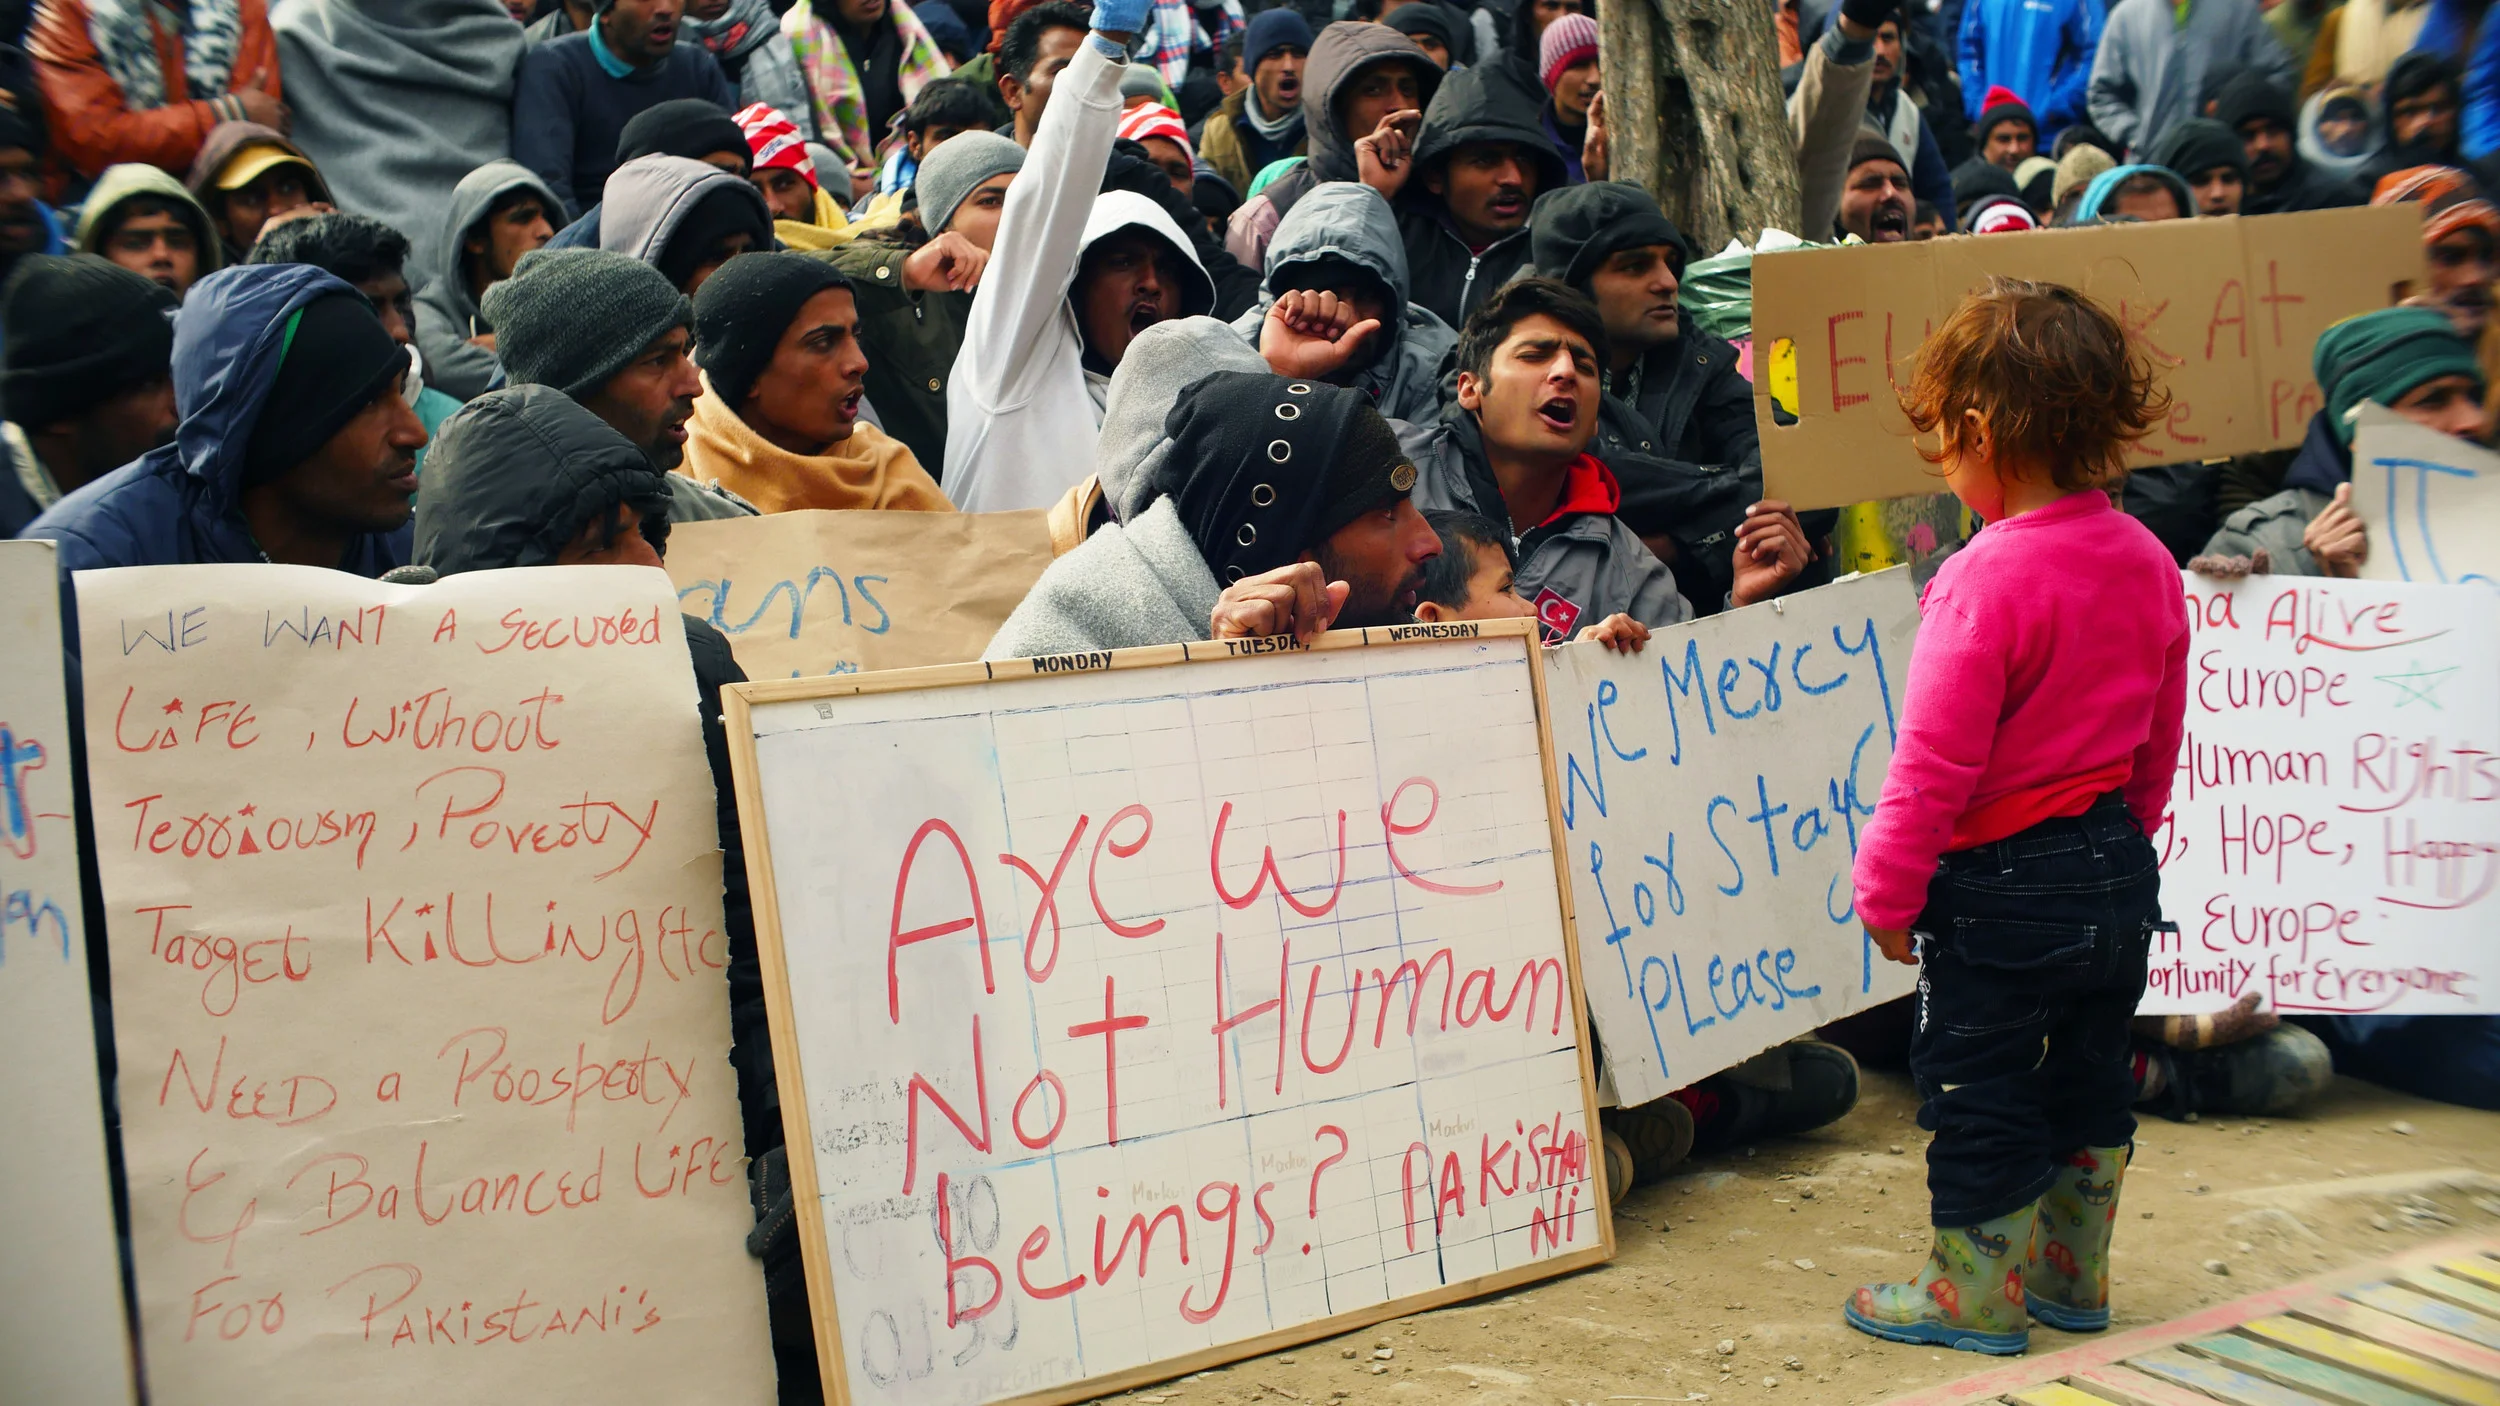 WE WANT A SECURED
LiFE , Without
Terriousm , Poverty
Target Killing Etc
NEED a Prosperty
& Balanced LiFE
For PAKistANi's
ans
MONDAY TUESDAY WEDNESDAY
Are we
Not Human
beings? PAKiSTAN
Ni
Markus
Markus
Markus
We Mercy
for Stay
PLease
At
Alive
Europe
Human Rights
Hope, Happy
Europe
for Everyone